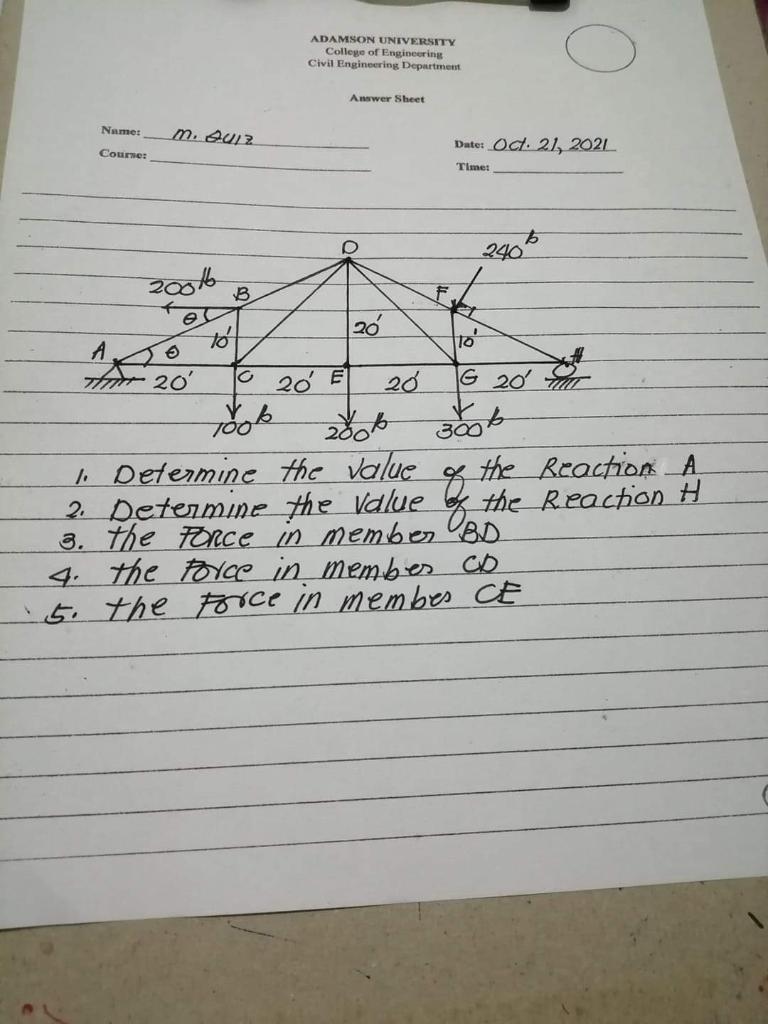 ADAMSON UNIVERSITY
College of Engineering
Civil Engineering Department
Answer Sheet
Name: M. Quiz
Date: Oct. 21, 2021
Course:
Time:
D
240 lb
200 lb
B
F
θ
10'
20'
10'
A
θ
H
20'
C
20'
E
20'
G
20'
100 lb
200 lb
300 lb
1. Determine the value of the Reaction A
2. Determine the value of the Reaction H
3. the Force in member BD
4. the Force in member CD
5. the Force in member CE